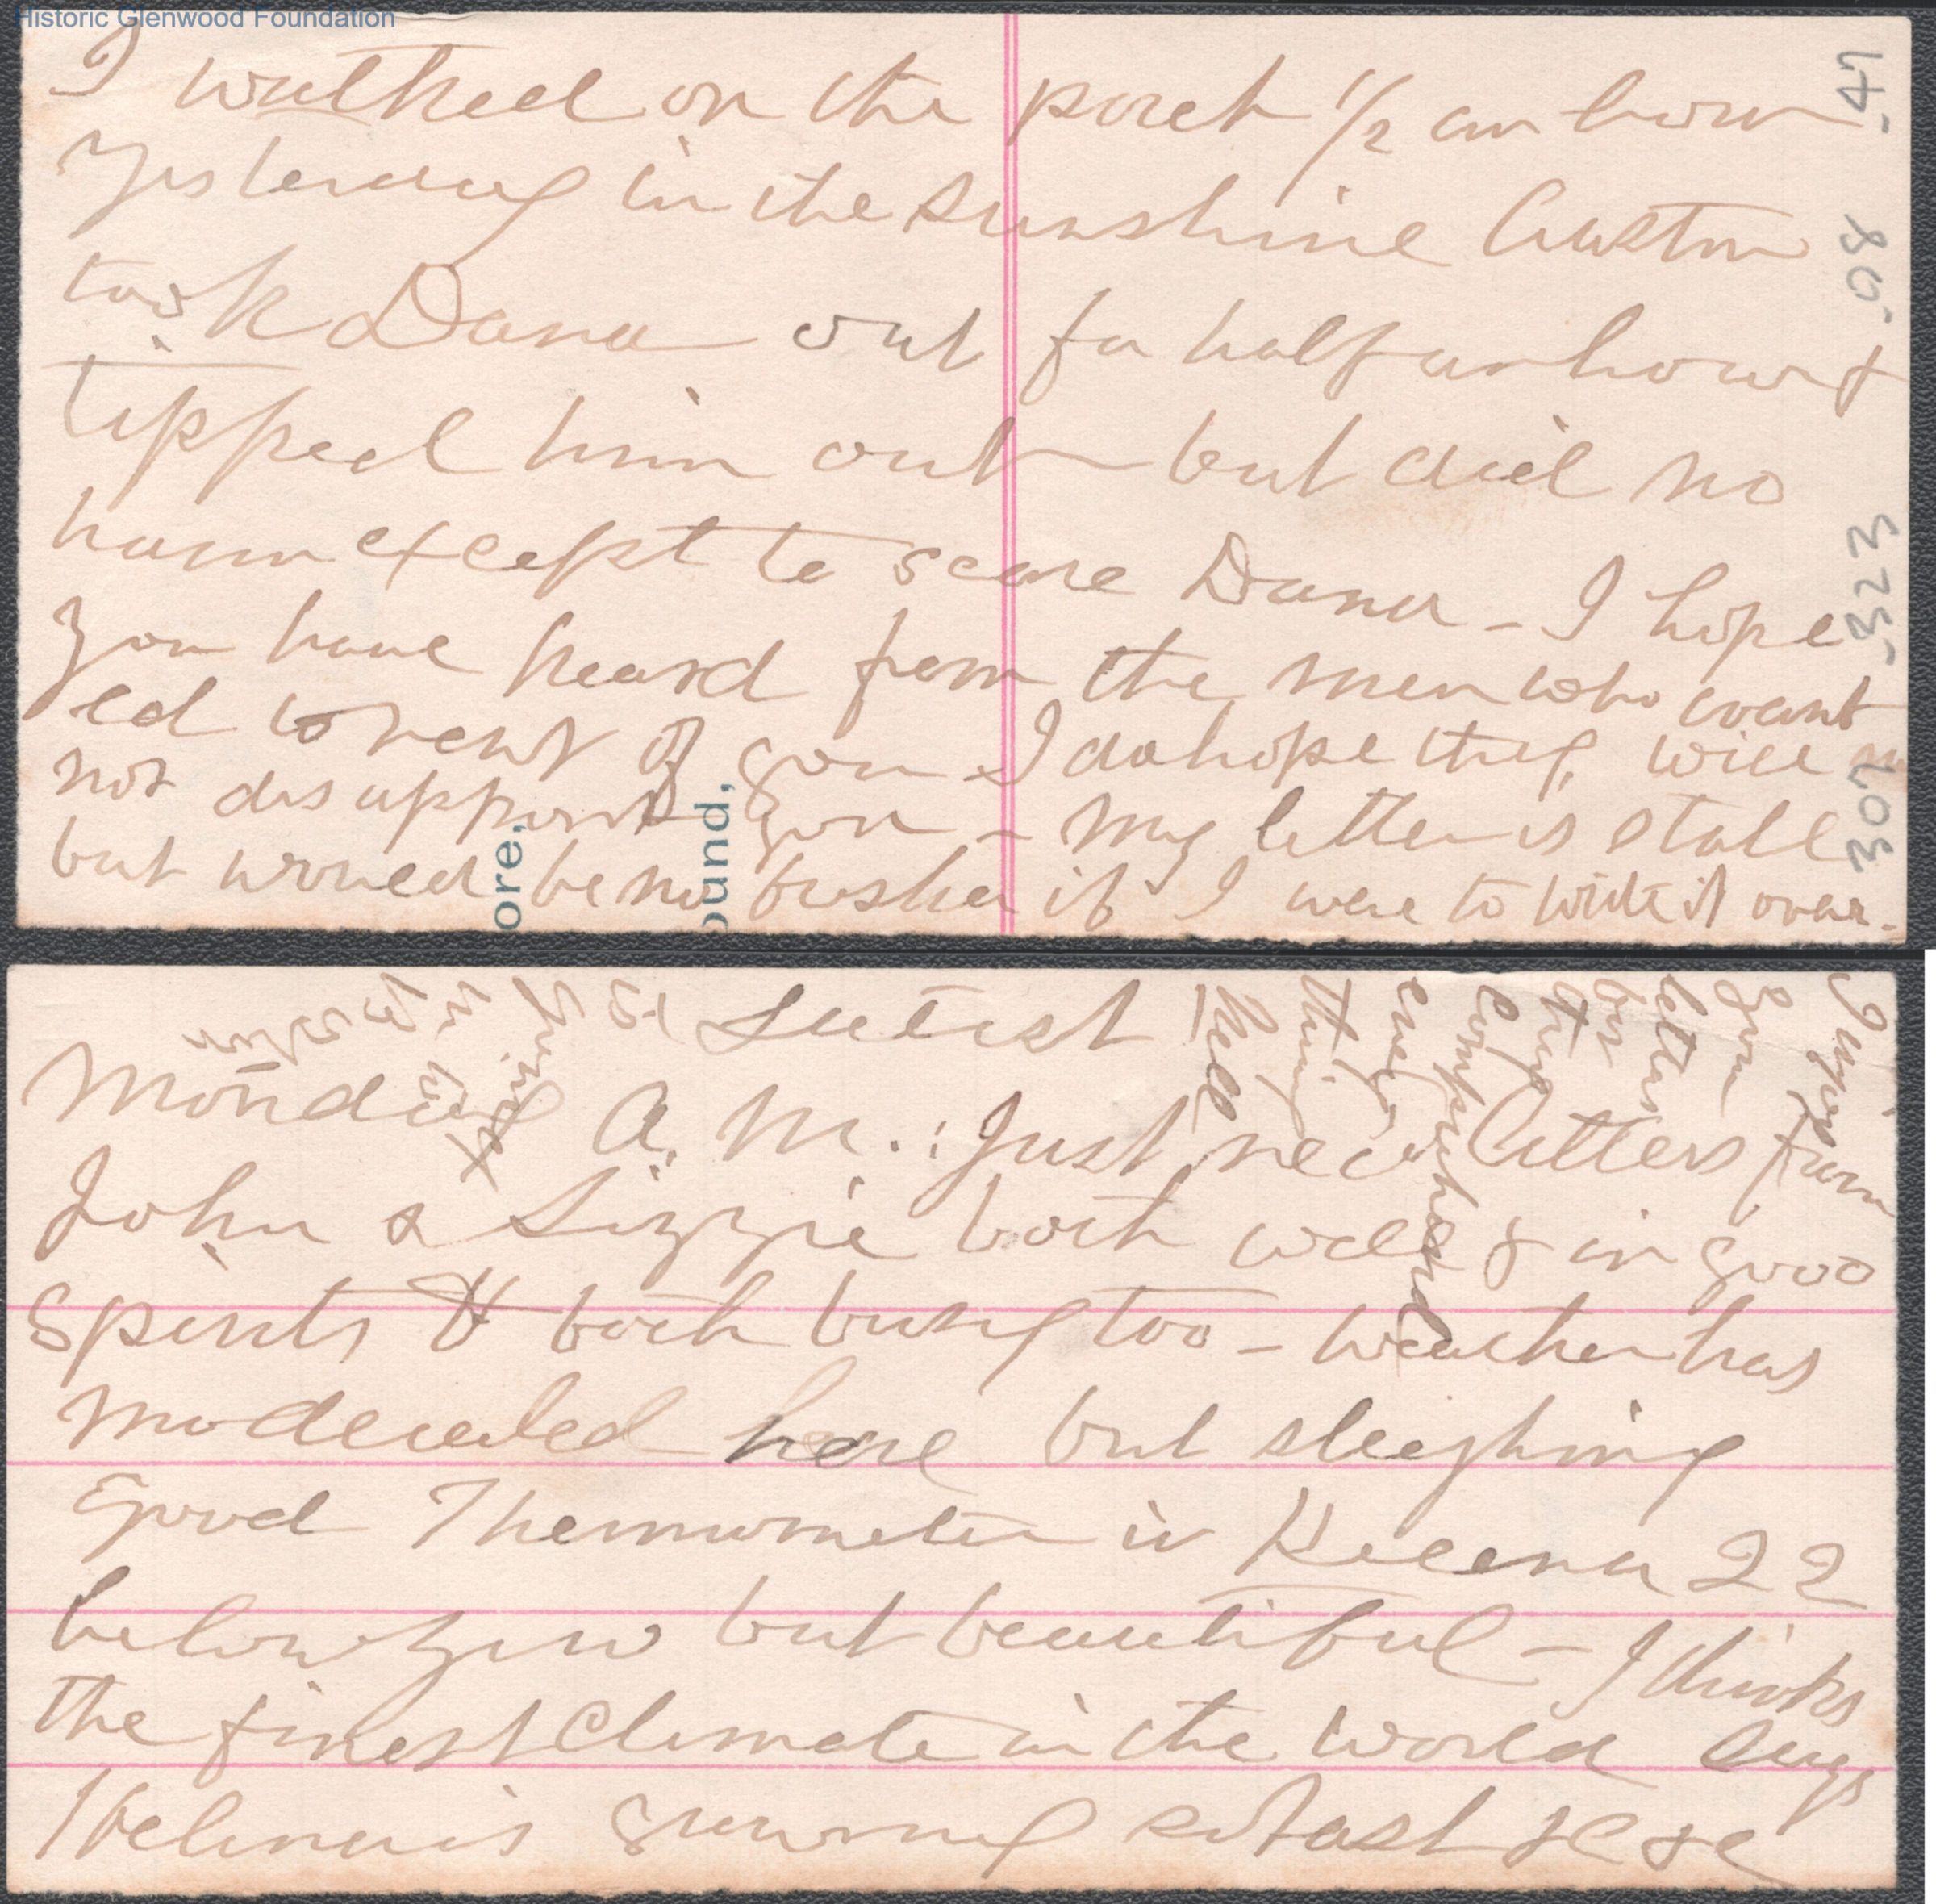 Historic Glenwood Foundation
I walked on the porch 1/2 an hour
yesterday in the sunshine Austin
took Dana out for half an hour &
tipped him out but did no
harm except to scare Dana - I hope
you have heard from the men who want
ed to rent of you I do hope they will
not disappoint you - my letter is stale
but would be no fresher if I were to write it over.
307-323-08-47
ore,
ound,
Latest
Monday A.M.: Just rec'd letters from
John & Lizzie both well & in good
spirits & both busy too - weather has
moderated here but sleighing
good Thermometer in Helena 22
below zero but beautiful - J thinks
the finest climate in the world says
Helena is growing so fast &c &c
I
your
letter
but
they
comprehend
every
thing
Nell